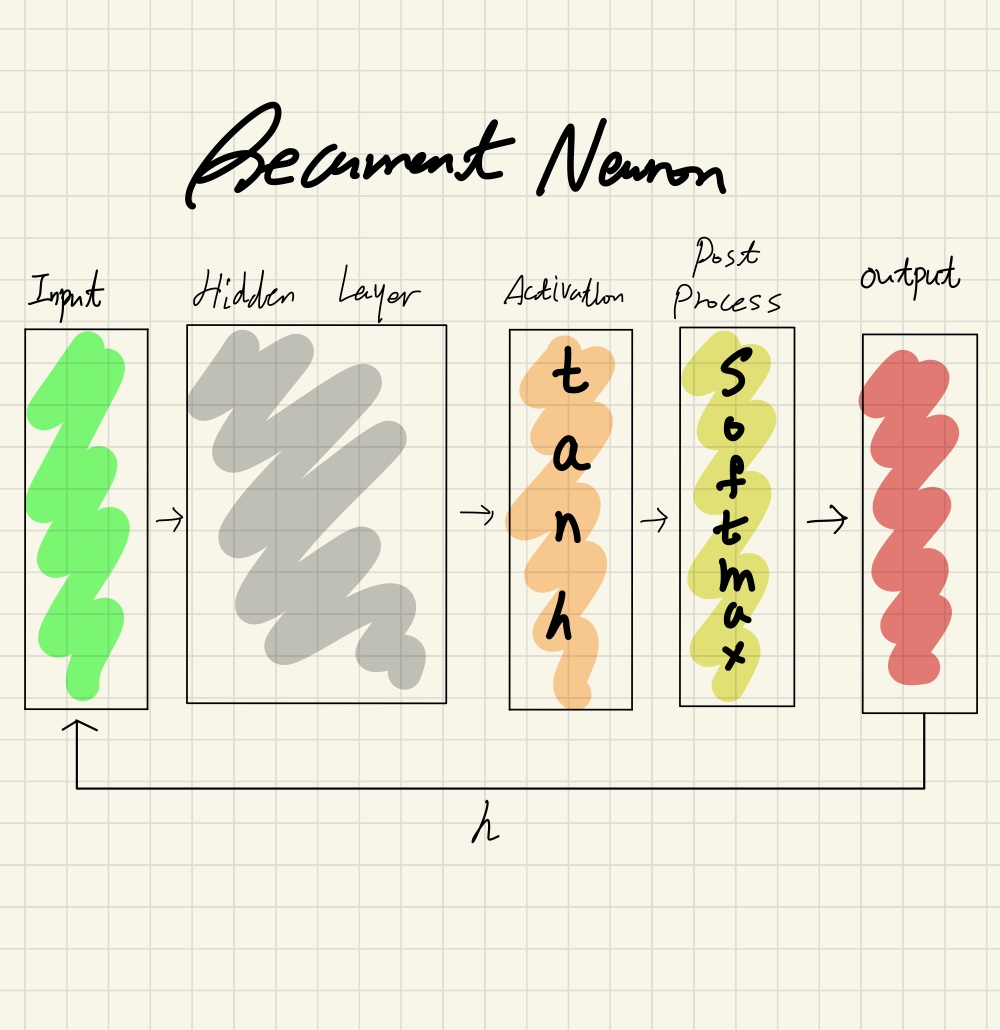 Recurrent Neuron
Input
Hidden Layer
Activation
Post
Process
output
tanh
Softmax
h